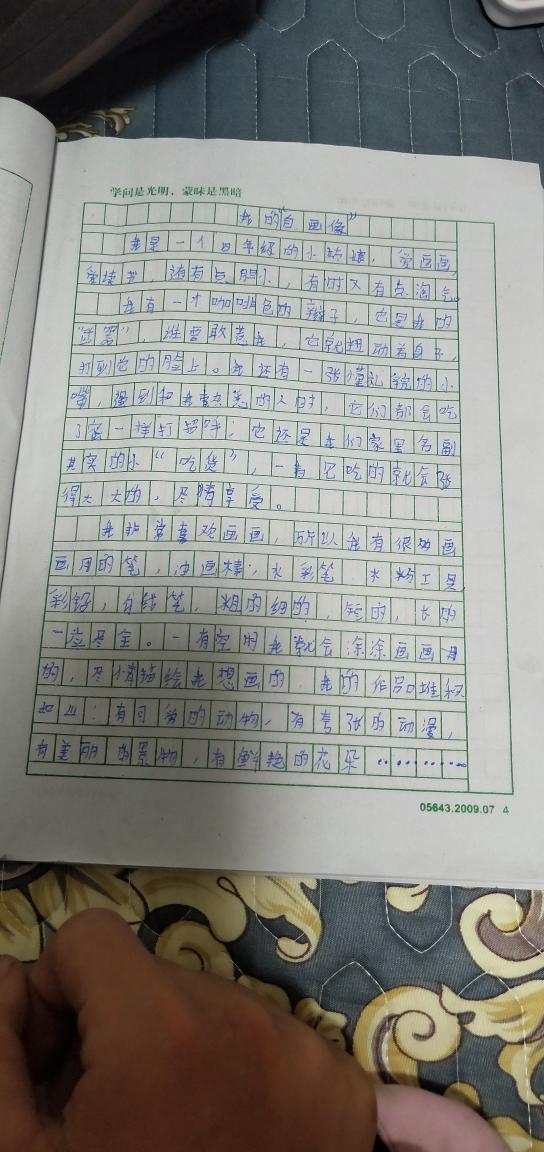 学问是光明，蒙昧是黑暗
我的“自画像”
我是一个四年级的小姑娘，爱画画，
爱读书，还有点胆小，有时又有点淘气。
我有一个咖啡色的辫子，也是我的
“武器”，谁要敢惹我，它就扭动着身子，
打到他的脸上。我还有一张懂礼貌的小
嘴，遇到和我的人时，它们都会吃
了蜜一样打招呼；它还是我们家里名副
其实的小“吃货”，一看见吃的就会张
得大大的，尽情享受。
我非常喜欢画画，所以我有很多画
画用的笔，油画棒，水彩笔，水粉工具，
彩铅，勾线笔，粗的细的，短的，长的
一应尽全。一有空时我就会涂涂画画
的，尽情描绘我想画的，我的作品堆积
如山：有可爱的动物，有夸张的动漫，
有美丽的景物，有鲜艳的花朵…………
05643.2009.07 4